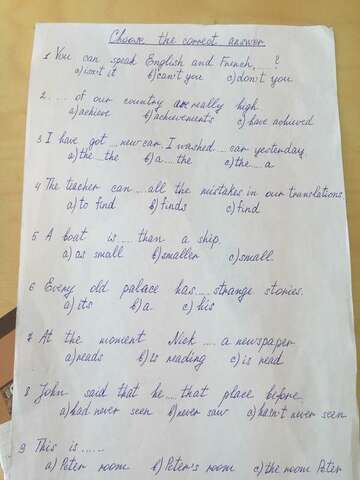 Choose the correct answer
1 You can speak English and French, ?
a) isn't it b) can't you c) don't you
2. .... of our country are really high
a) achieve b) achievements c) have achieved
3 I have got ... new car. I washed ... car yesterday
a) the ... the b) a ... the c) the ... a
4 The teacher can ... all the mistakes in our translations
a) to find b) finds c) find
5 A boat is .... than a ship.
a) as small b) smaller c) small.
6 Every old palace has .... strange stories.
a) its b) a c) his
7 At the moment Nick .... a newspaper
a) reads b) is reading c) is read
8 John said that he ... that place before.
a) had never seen b) never saw c) hasn't never seen
9 This is ......
a) Peter room b) Peter's room c) the room Peter